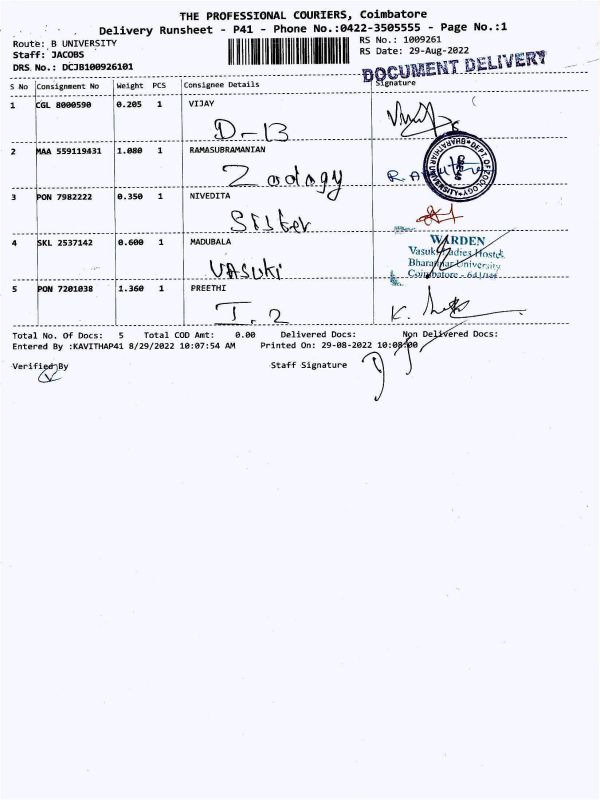 THE PROFESSIONAL COURIERS, Coimbatore
Delivery Runsheet - P41 - Phone No.:0422-3505555 - Page No.:1
Route: B UNIVERSITY
RS No.: 1009261
Staff: JACOBS
RS Date: 29-Aug-2022
DRS No.: DCJB100926101
DOCUMENT DELIVERY
S No Consignment No Weight PCS Consignee Details Signature
1 CGL 8000590 0.205 1 VIJAY
D-13
2 MAA 559119431 1.080 1 RAMASUBRAMANIAN
Zoology
DEPT OF ZOOLOGY
BHARATHIAR UNIVERSITY
3 PON 7982222 0.350 1 NIVEDITA
Sister
4 SKL 2537142 0.600 1 MADUBALA
VASUKi
WARDEN
Vasuki Ladies Hostel
Bharathiar University
Coimbatore - 641046
5 PON 7201038 1.360 1 PREETHI
T.2
Total No. Of Docs: 5 Total COD Amt: 0.00 Delivered Docs: Non Delivered Docs:
Entered By :KAVITHAP41 8/29/2022 10:07:54 AM Printed On: 29-08-2022 10:08:00
Verified By Staff Signature